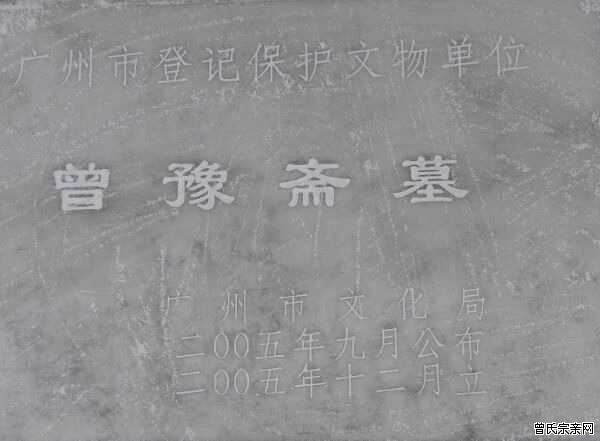 广州市登记保护文物单位
曾豫斋墓
广州市文化局
二00五年九月公布
二00五年十二月立
曾氏宗亲网